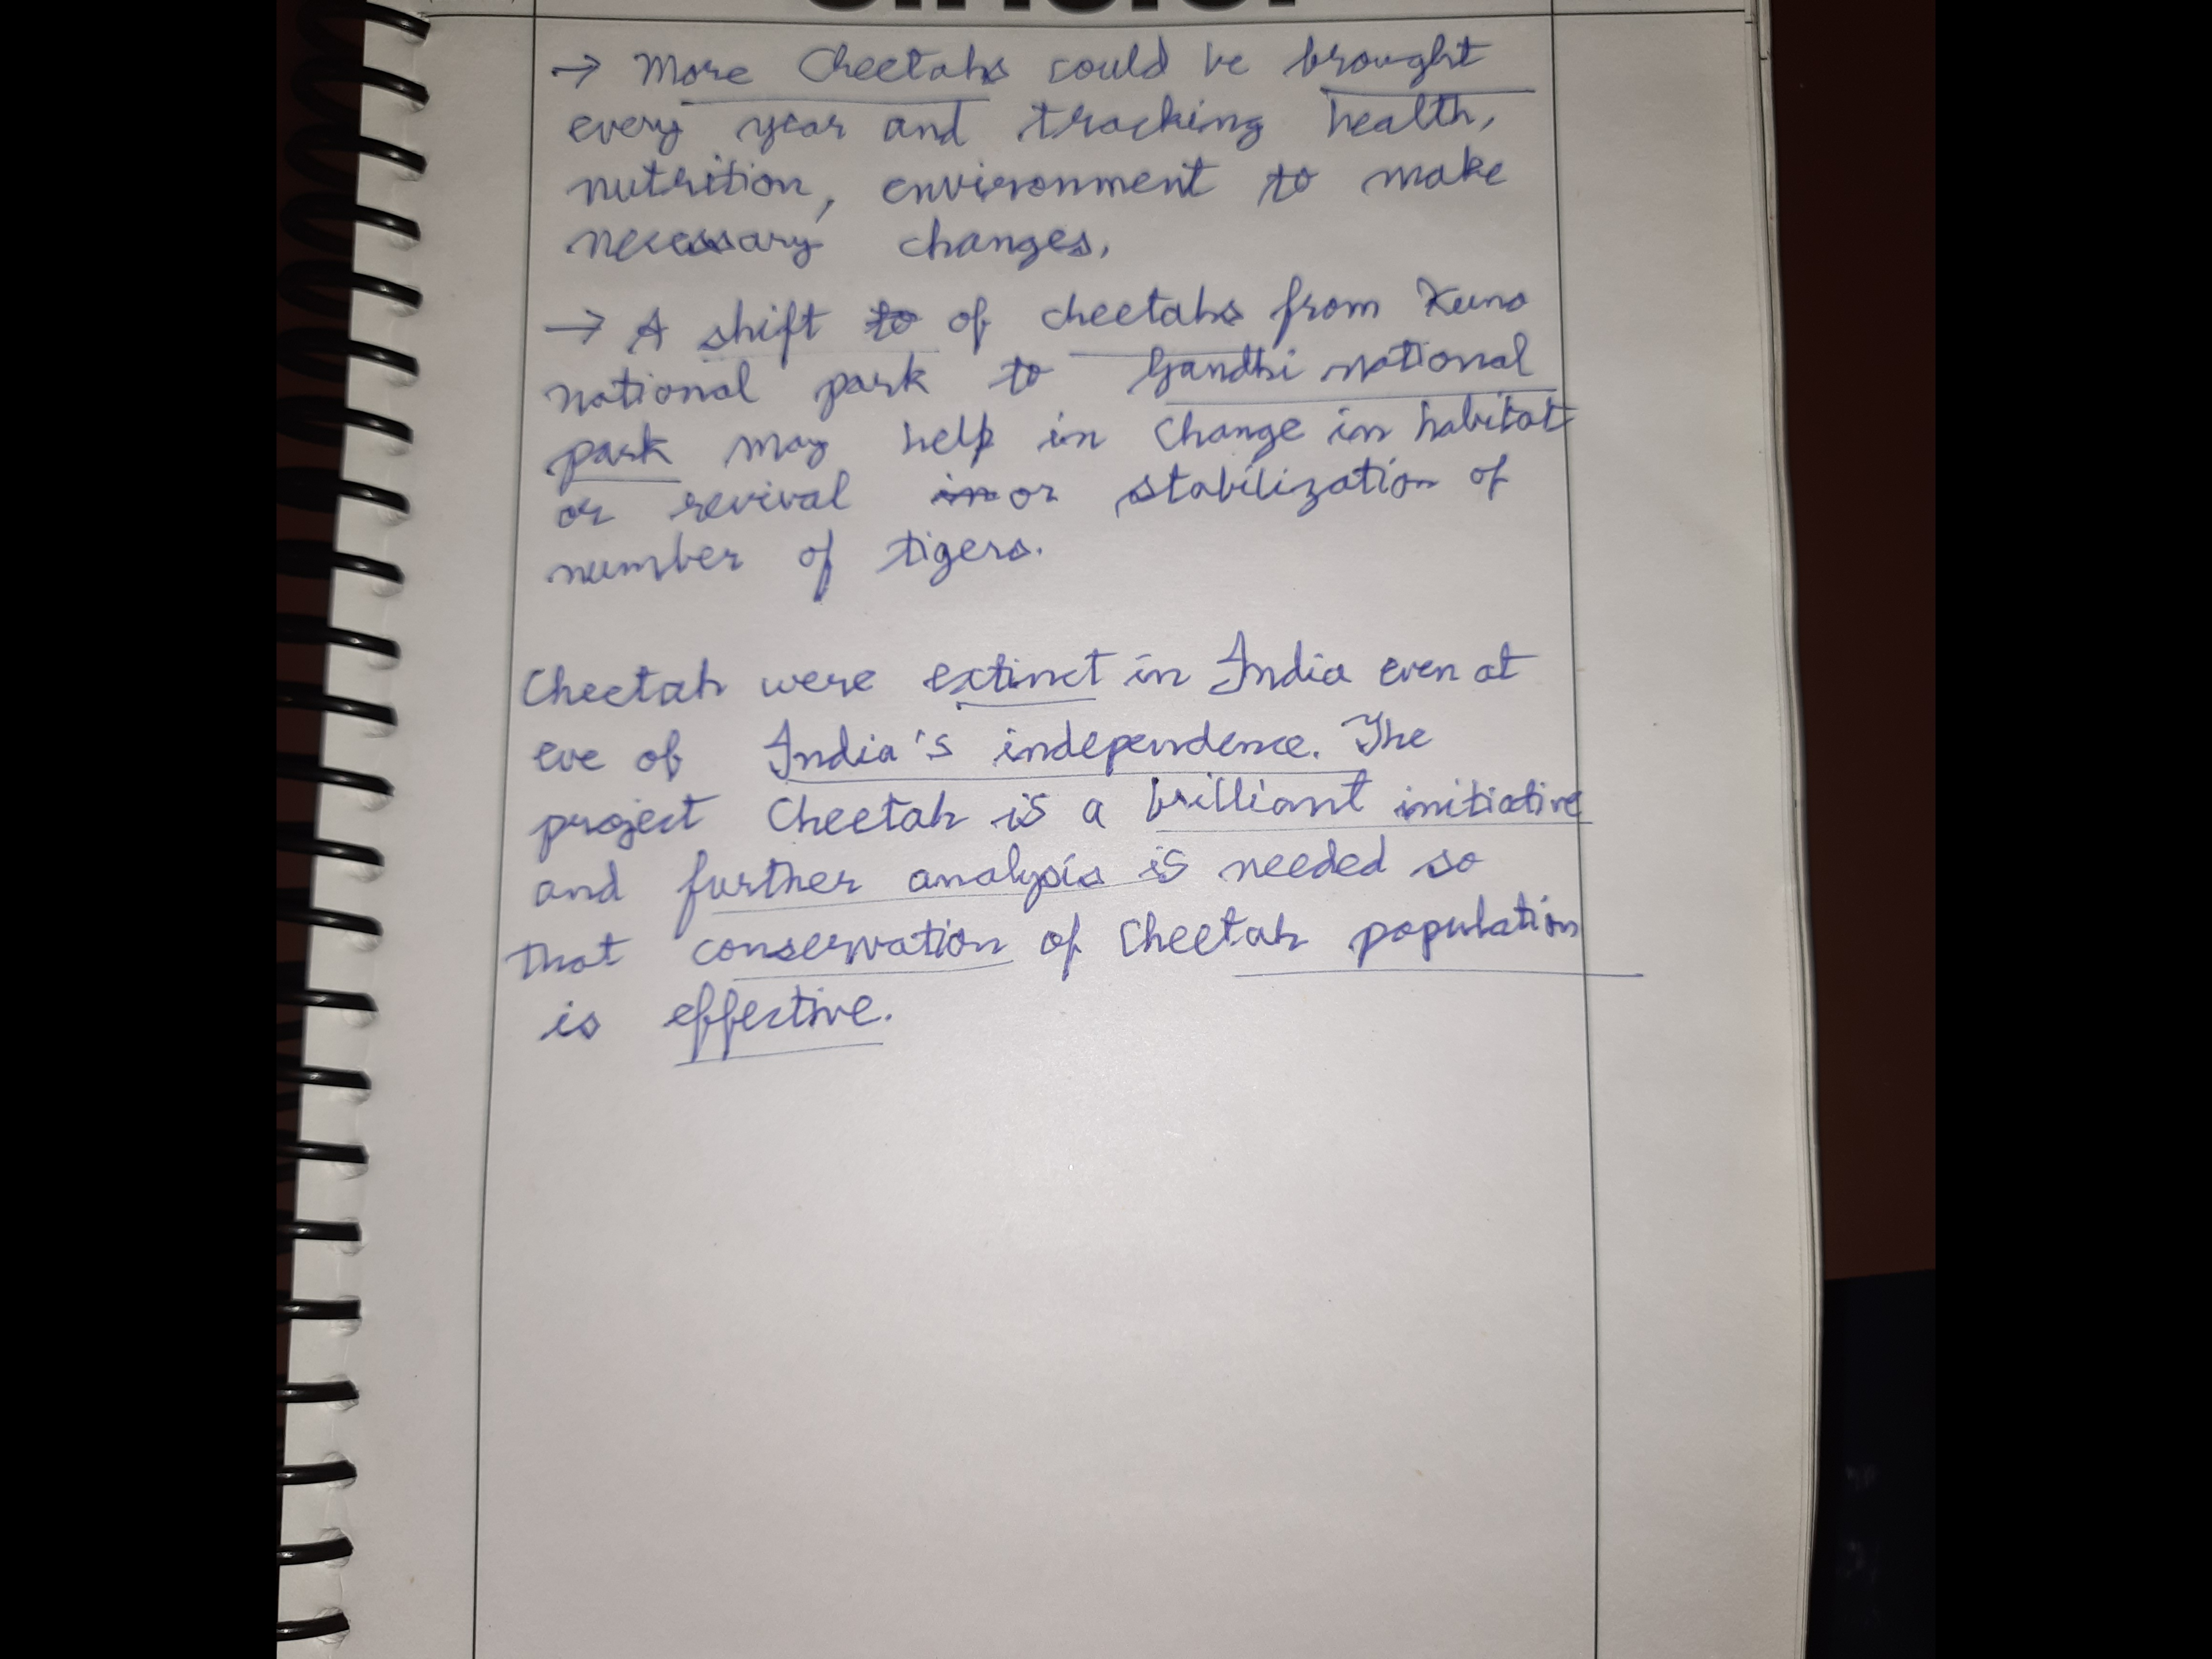 → More Cheetahs could be brought
every year and tracking health,
nutrition, environment to make
necessary changes.
→ A shift to of cheetahs from Kuno
national park to Gandhi national
park may help in change in habitat
or revival in or stabilization of
number of tigers.
Cheetah were extinct in India even at
eve of India's independence. The
project Cheetah is a brilliant initiative
and further analysis is needed so
that conservation of Cheetah population
is effective.